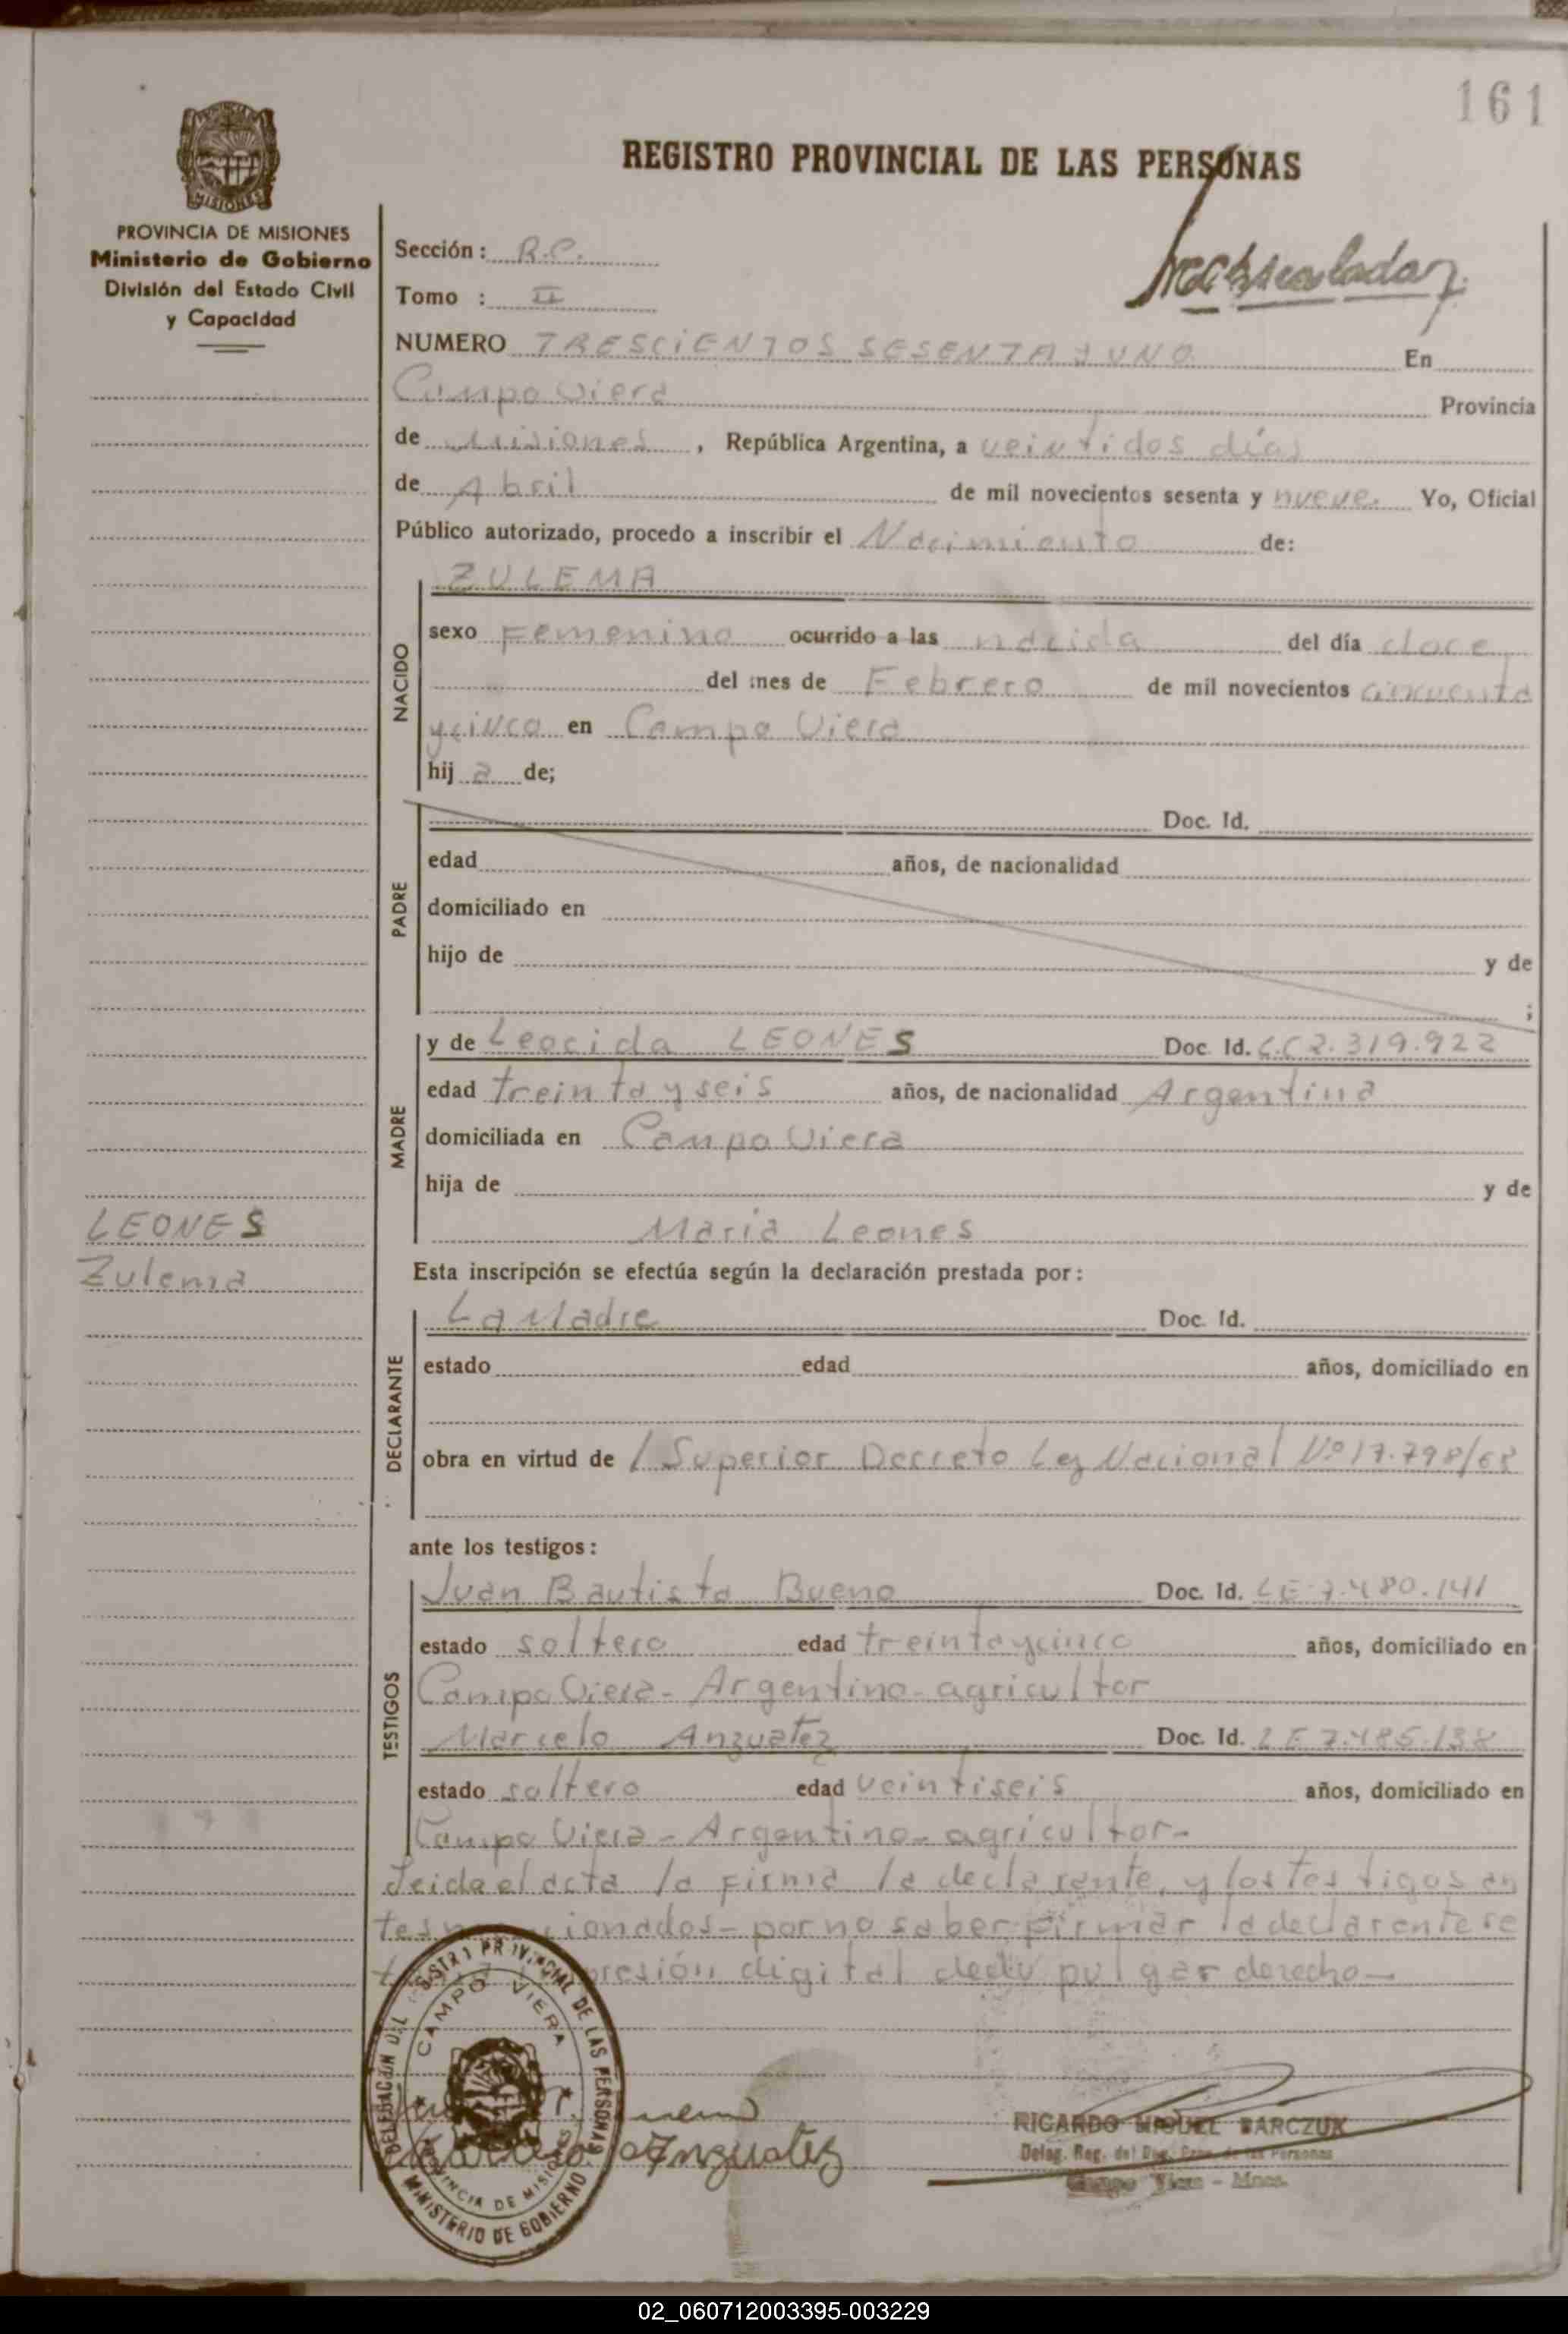 161
REGISTRO PROVINCIAL DE LAS PERSONAS
PROVINCIA DE MISIONES
Ministerio de Gobierno
División del Estado Civil
y Capacidad
Sección: R.C.
Tomo : II
NUMERO TRESCIENTOS SESENTA y UNO En
Campo Viera Provincia
de Misiones, República Argentina, a veintidos días
de Abril de mil novecientos sesenta y nueve. Yo, Oficial
Público autorizado, procedo a inscribir el Nacimiento de:
NACIDO
ZULEMA
sexo Femenino ocurrido a las nacida del día doce
del mes de Febrero de mil novecientos cincuenta
y cinco en Campo Viera
hij a de;
PADRE
Doc. Id.
edad años, de nacionalidad
domiciliado en
hijo de y de
;
MADRE
y de Leocida LEONES Doc. Id. C.C 2.319.922
edad treinta y seis años, de nacionalidad Argentina
domiciliada en Campo Viera
hija de y de
Maria Leones
LEONES
Zulema
Esta inscripción se efectúa según la declaración prestada por:
DECLARANTE
La Madre Doc. Id.
estado edad años, domiciliado en
obra en virtud de / Superior Decreto Ley Nacional Nº 17.798/68
ante los testigos:
TESTIGOS
Juan Bautista Bueno Doc. Id. LE 7.480.141
estado soltero edad treinta y cinco años, domiciliado en
Campo Viera - Argentino - agricultor
Marcelo Anzuatez Doc. Id. LE 7.485.138
estado soltero edad veintiseis años, domiciliado en
Campo Viera - Argentino - agricultor -
Leida el acta la firma la declarente, y los testigos an
tes cionados - por no saber firmar la declarente se
presión digital dedo pulgar derecho -
DELEGACIÓN DEL REGISTRO PROVINCIAL DE LAS PERSONAS
CAMPO VIERA
PROVINCIA DE MISIONES
MINISTERIO DE GOBIERNO
Marcelo Anzuatez
RICARDO MIGUEL BARCZUK
Deleg. Reg. del Reg. Prov. de las Personas
Campo Viera - Mnes.
02_060712003395-003229